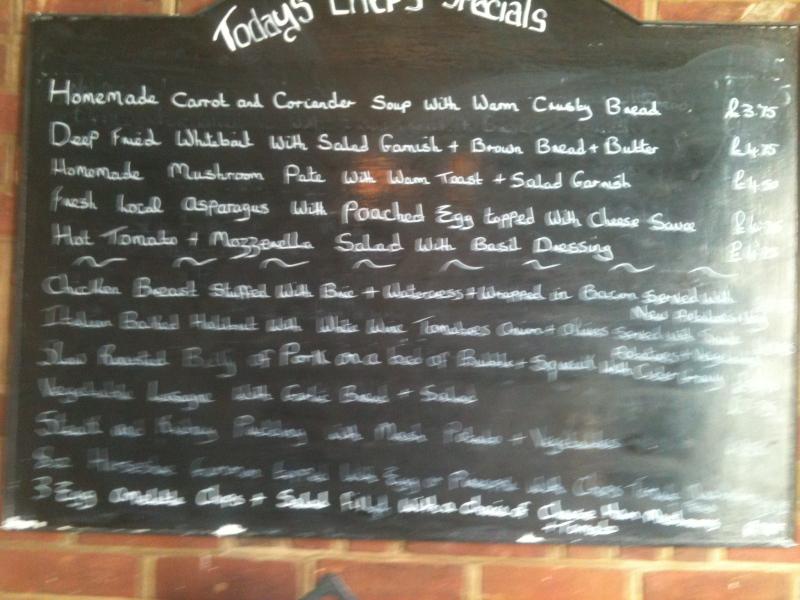 Todays Chefs Specials
Homemade Carrot and Coriander Soup with Warm Crusty Bread £3.75
Deep Fried Whitebait With Salad Garnish + Brown Bread + Butter £4.75
Homemade Mushroom Pate With Warm Toast + Salad Garnish £4.50
Fresh Local Asparagus With Poached Egg topped With Cheese Sauce
Hot Tomato + Mozzerella Salad With Basil Dressing
Chicken Breast Stuffed With Brie + Watercress + Wrapped in Bacon Served with
New Potatoes +
Italian Baked Halibut With White Wine Tomatoes Onion + Olives Served with
Potatoes +
Slow Roasted Belly of Pork on a bed of Bubble + Squeak With Cider Gravy
Vegetable Lasagne With Garlic Bread + Salad
Steak and Kidney Pudding with Mash Potato + Vegetables
Gammon topped With Egg or With Chips
3 Egg omelette Chips + Salad Filled With a Choice of Cheese Ham Mushrooms
+ Tomato